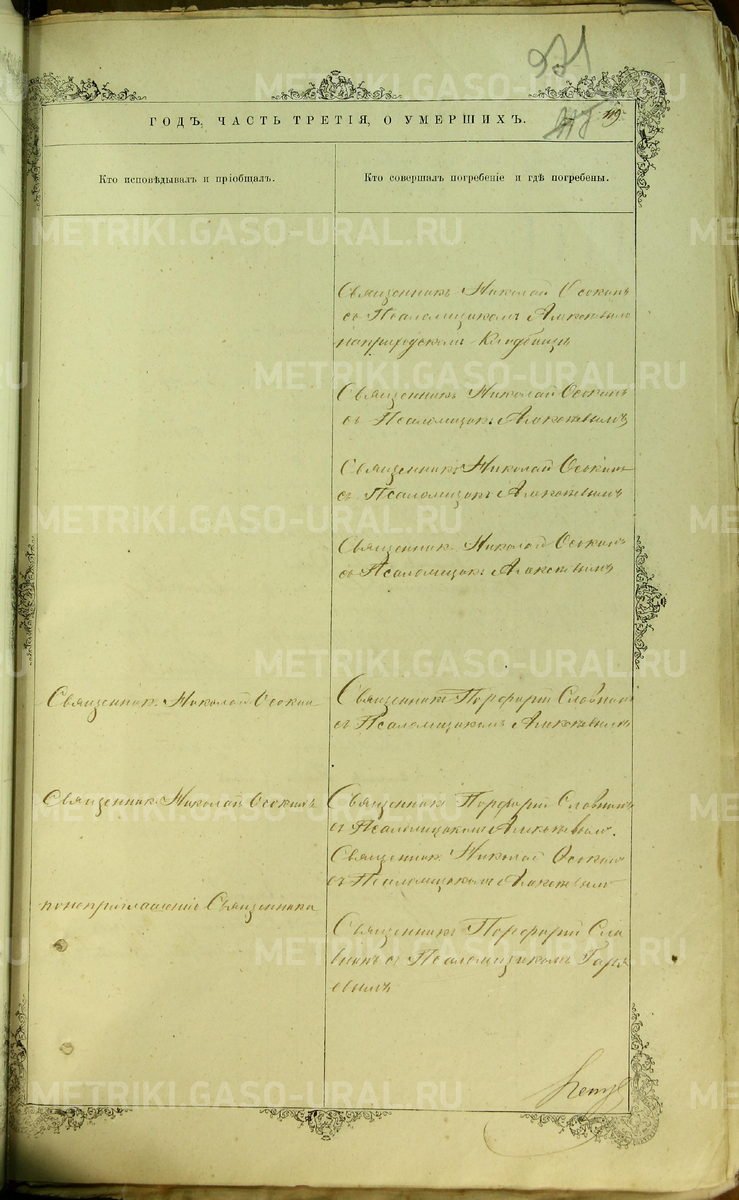 921
119.
ГОДЪ, ЧАСТЬ ТРЕТІЯ, О УМЕРШИХЪ.
Кто исповѣдывалъ и пріобщалъ.
Кто совершалъ погребеніе и гдѣ погребены.
Священникъ Николай Осокинъ
съ Псаломщикомъ Алексѣевымъ
Священникъ Николай Осокинъ
съ Псаломщик: Алексѣевымъ
Священникъ Николай Осокинъ
съ Псаломщик: Алексѣевымъ
Священник: Николай Осокинъ
съ Псаломщик: Алексѣевымъ
Священник: Николай Осокин
Священникъ Порфирій Словцовъ
съ Псаломщикомъ Алексѣевымъ
Священник: Николай Осокинъ
Священникъ Порфирій Словцовъ
съ Псаломщикомъ Алексѣевымъ.
Священник: Николай Осокинъ
съ Псаломщикомъ Алексѣевымъ
по неприглашенію Священника
Священникъ Порфирій Сло
съ Псаломщикомъ
METRIKI.GASO-URAL.RU